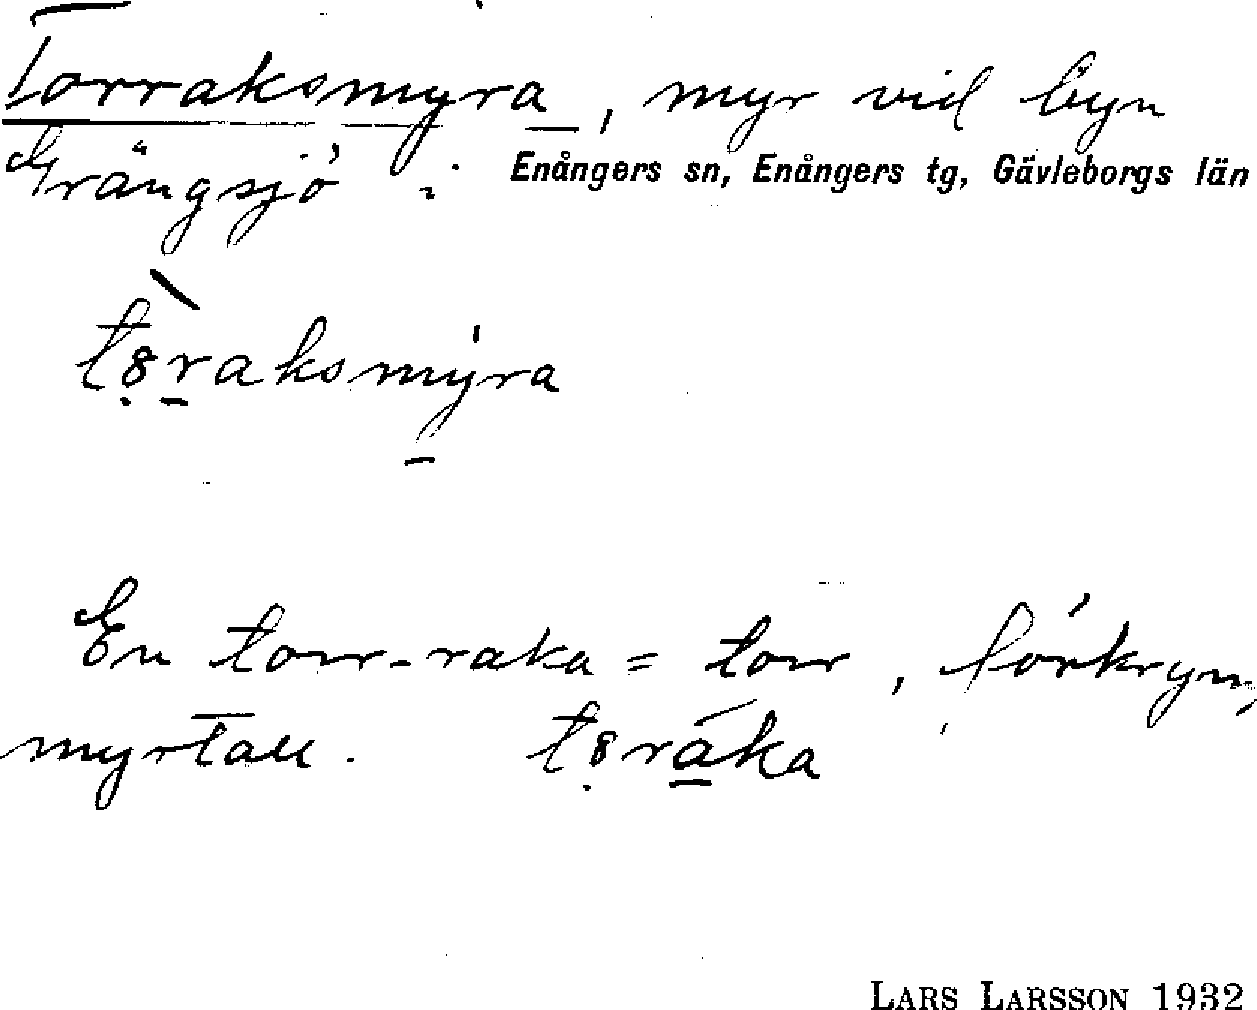 Torraksmyra, myr vid byn
Grängsjö i Enångers sn, Enångers tg, Gävleborgs län
tȣ̣raksmýra
En torr-raka = torr, förkrym,
myrtall. tȣ̣ráka
LARS LARSSON 1932